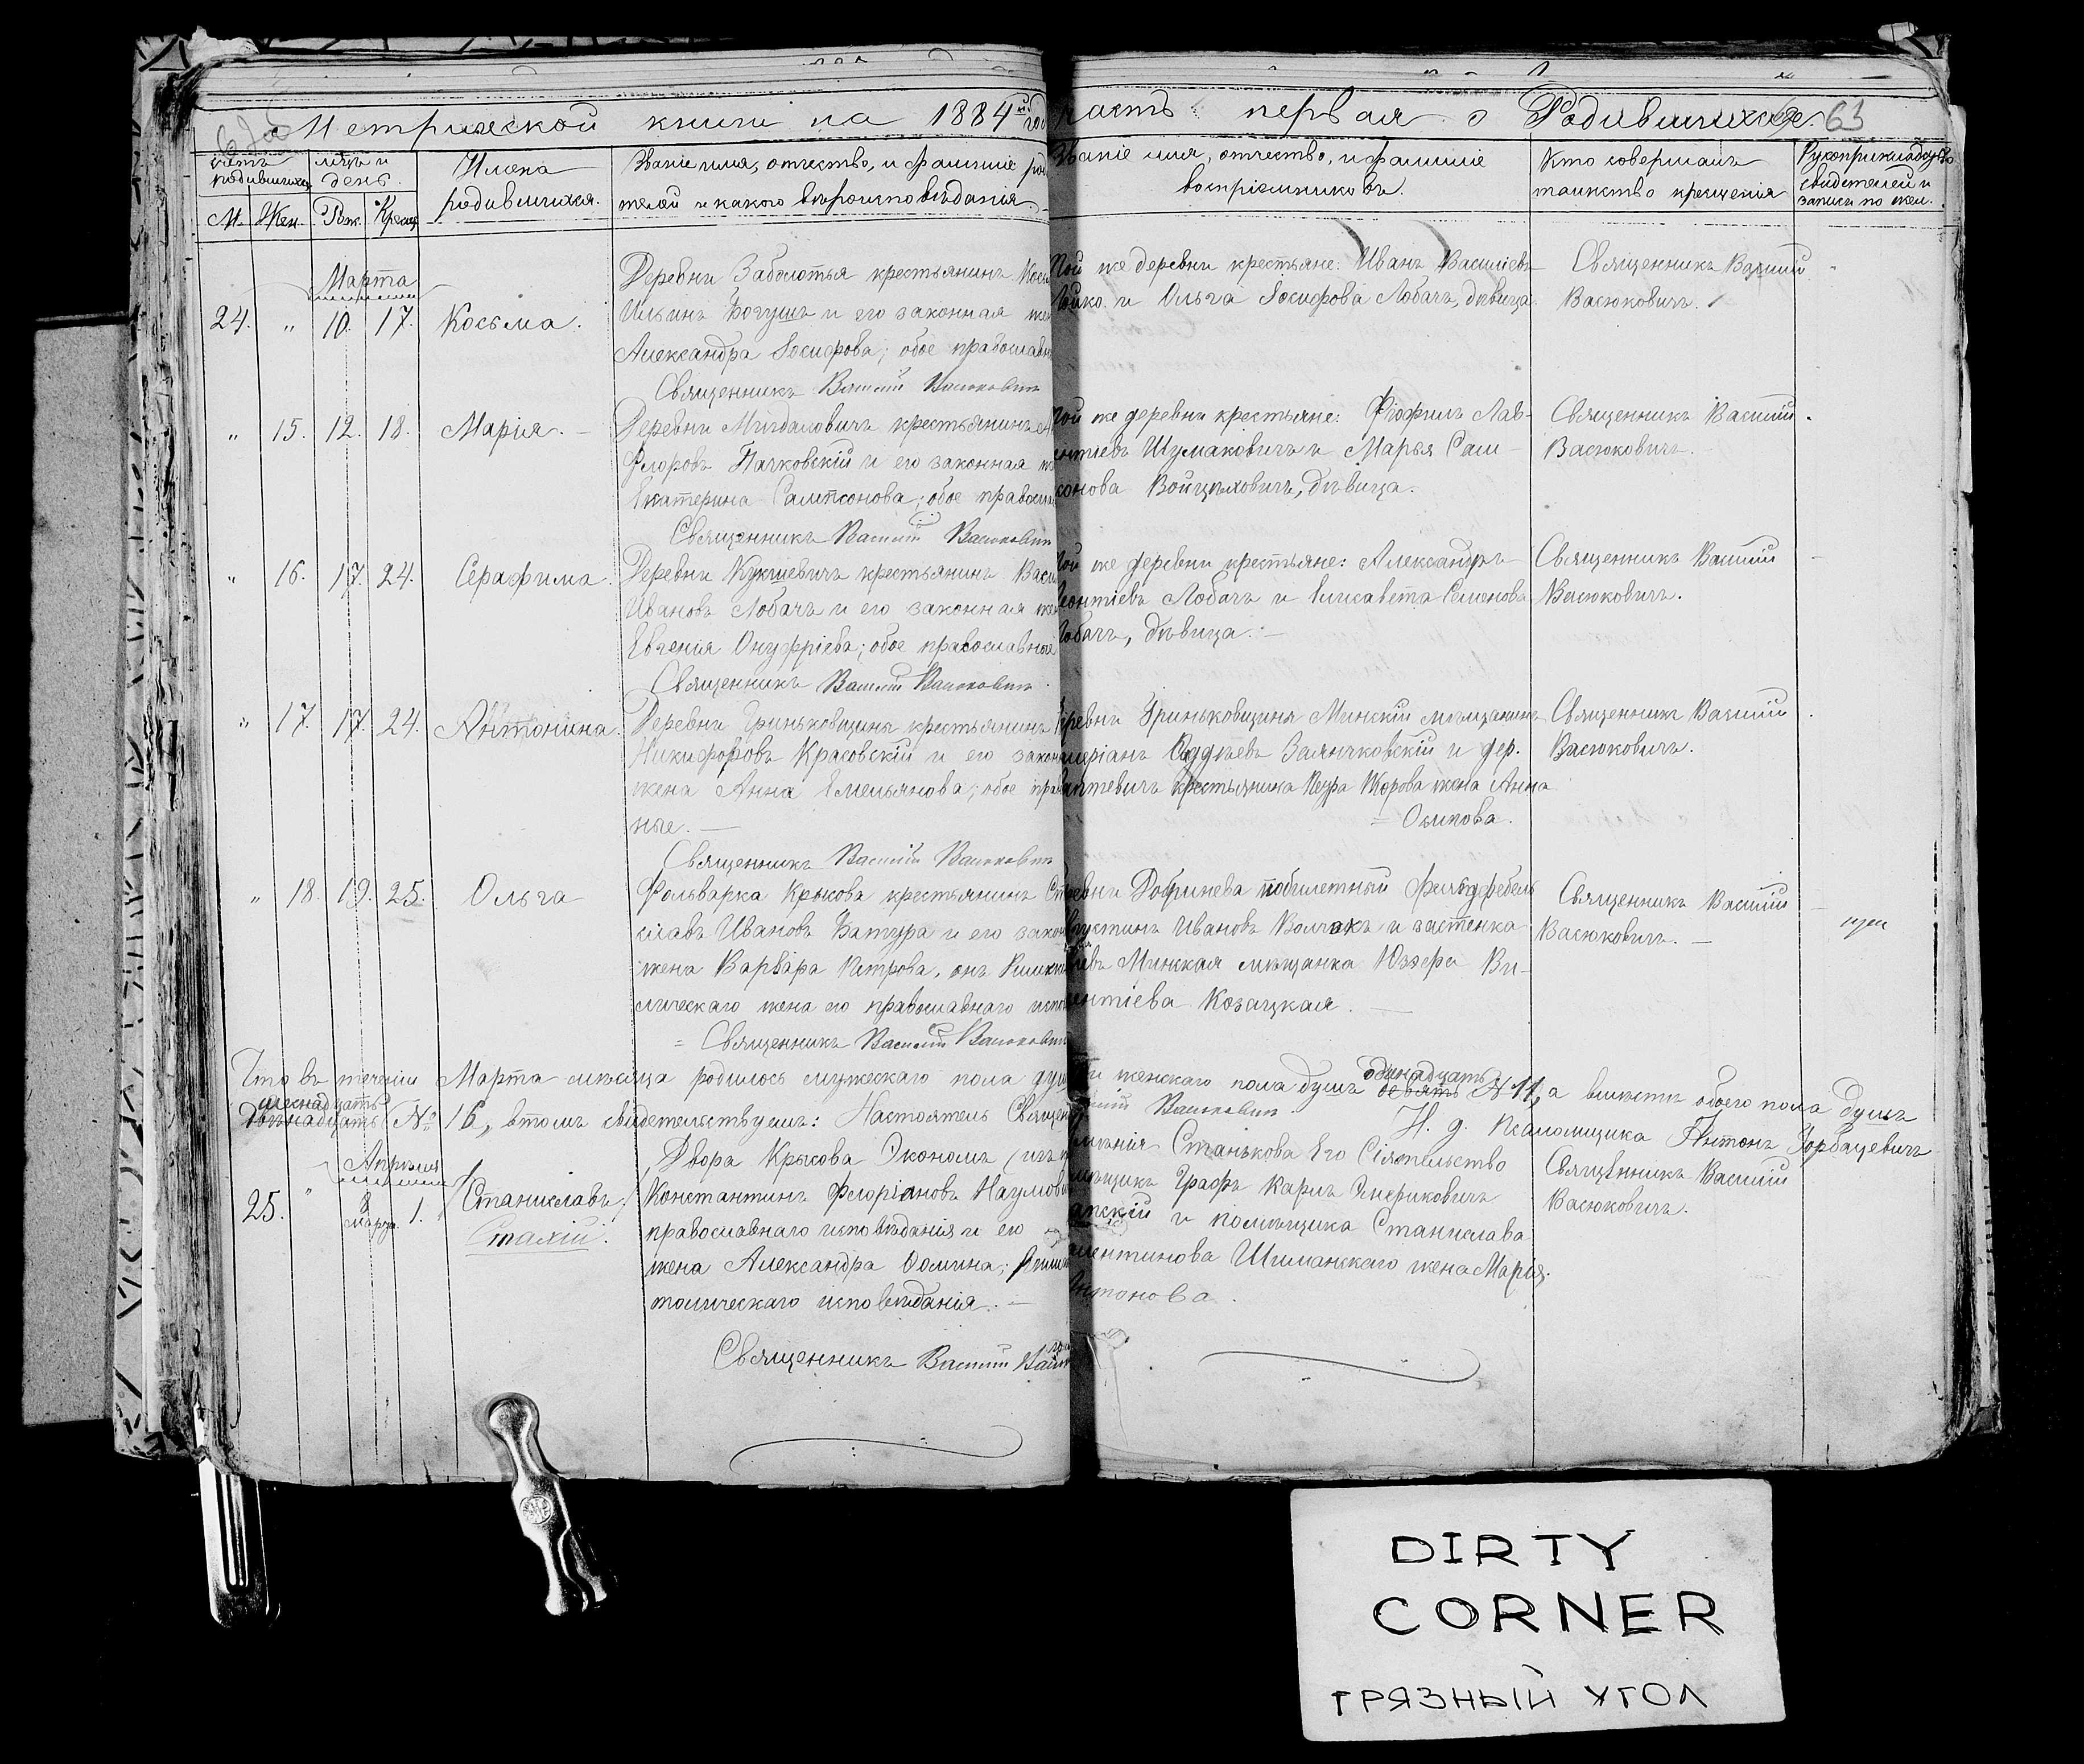 Метрической книги на 1884й год
часть первая о Родившихся. 63
счетъ родившихся
мѣсяцъ и день.
Имена родившихся.
Званіе имя, отчество, и фамилія роди
телей и какого вѣроисповѣданія.
М. Жен. Рож. Крещ.
Званіе имя, отчество, и фамиліе
воспріемниковъ.
Кто совершалъ
таинство крещенія
Рукоприкладство
свидетелей и
записи по жел.
Марта
24. " 10. 17. Косьма.
Деревни Заболотья крестьянинъ
Ильинъ Богушъ и его законная же
Александра Іосифова; обое православн
Священникъ Василій Васюковичъ
Той же деревни крестьяне: Иванъ Василіевъ
и Ольга Іосифова Лобачъ, дѣвица.
Священникъ Василій
Васюковичъ.
" 15. 12. 18. Марія.
Деревни крестьянинъ
Флоровъ Пачковскій и его законная ж
Екатерина Сампсонова; обое правосла
Священникъ Василій Васюкович
той же деревни крестьяне: Фіофилъ Лав-
ентіевъ Шумаковичъ и Марья Сам-
сонова Войцѣховичъ, дѣвица.
Священникъ Василій
Васюковичъ.
" 16. 17. 24. Серафима.
Деревни Кукшевичъ крестьянинъ Васи
Ивановъ Лобачъ и его законная же
Евгенія Онуфріева; обое православные
Священникъ Василій Васюковичъ
той же деревни крестьяне: Александръ
Леонтіевъ Лобачъ и Елисавета Семенова
Лобачъ, дѣвица.
Священникъ Василій
Васюковичъ.
" 17. 17. 24. Антонина.
Деревни Гриньковщины крестьянинъ
Никифоровъ Красовскій и его закон
жена Анна Емельянова; обое прав
ные.
Священникъ Василій Васюкович
деревни Гриньковщина Минскій мѣщанинъ
Заянчковскій и дер.
крестьянина Петра жена Анна
= Осипова.
Священникъ Василій
Васюковичъ.
" 18. 19. 25. Ольга
Фольварка Крысова крестьянинъ Ст
славъ Ивановъ Батура и его закон
жена Варвара Петрова, онъ Римск
лическаго жена его православнаго испо
= Священникъ Василій Васюкович
деревни Добринева фельдфебель
Августинъ Ивановъ Волчокъ и застенка
Минская мѣщанка Юзефа Ви-
центіева Козацкая.
Священникъ Василій
Васюковичъ.
Что въ теченіи Марта мѣсяца родилось мужескаго пола душ
и женскаго пола душъ одинадцать девять № 11, а вмѣстѣ обоего пола душъ
шеснадцать
двѣнадцать № 16, въ томъ свидетельствуемъ: Настоятель Священ
Василій Васюковичъ
И. д. Псаломщика Антонъ Горбацевичъ
Апрѣля
25. " 8 марта 1. Станиславъ.
Стахій.
Двора Крысова Экономъ
Константинъ Флоріановъ Наумови
православнаго исповѣданія и его
жена Александра Фомина; Римск
толическаго исповѣданія.
Священникъ Василій
имѣнія Станькова Его Сіятельство
помѣщикъ Графъ Карлъ Эмериковичъ
Чапскій и помѣщика Станислава
Шиманскаго жена Марія
Антонова.
Священникъ Василій
Васюковичъ.
DIRTY
CORNER
ГРЯЗНЫЙ УГОЛ